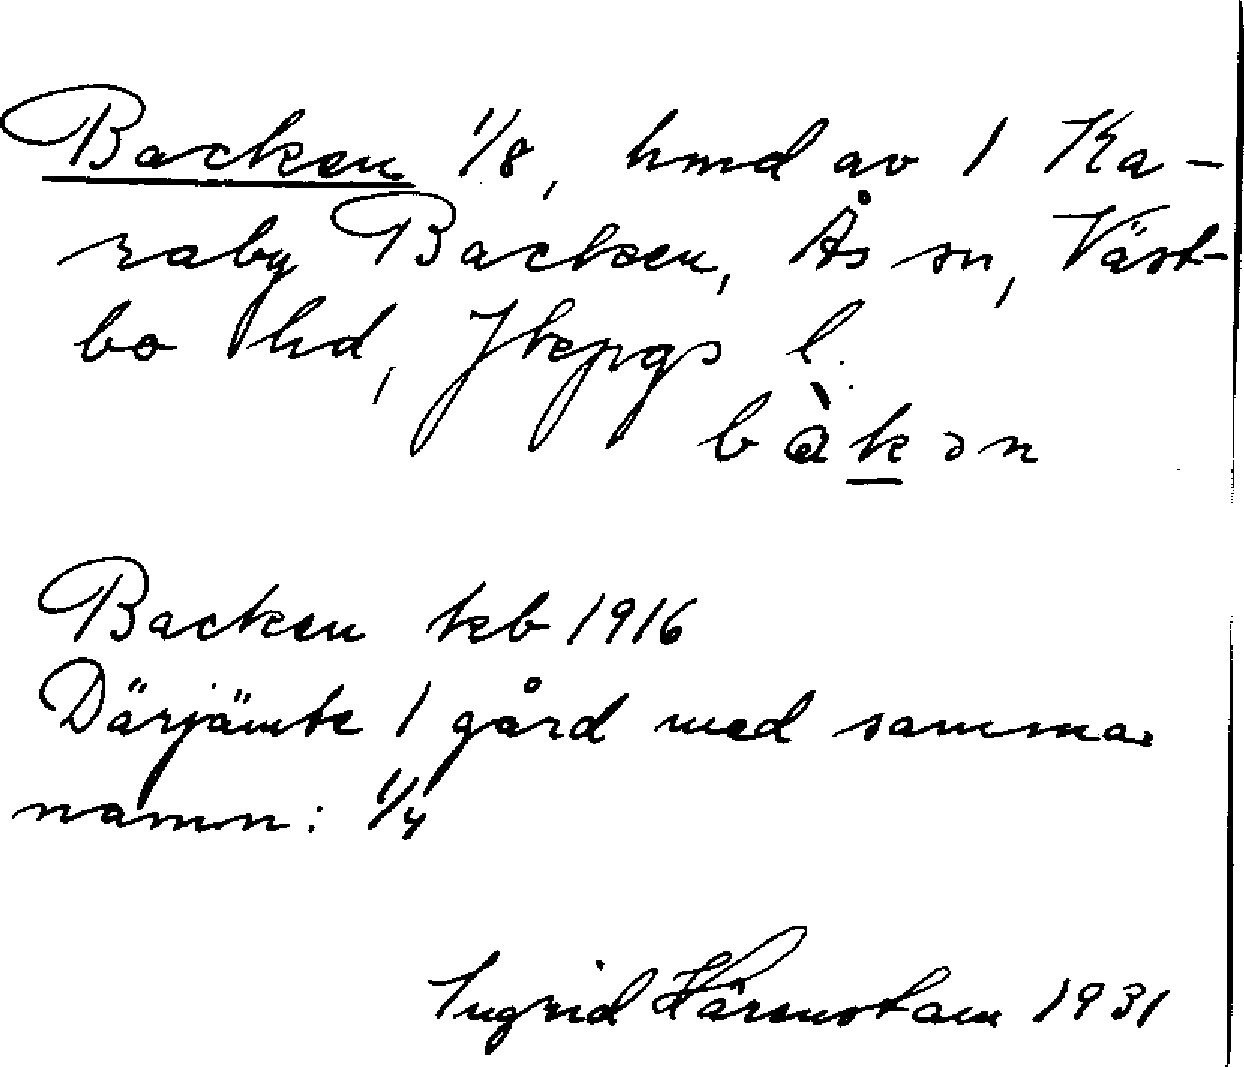 Backen 1/8, hmd av 1 Ka-
raby Backen, Ås sn, Väst-
bo hd, Jkpgs l.
bàkən
Backen kb 1916
Därjämte 1 gård med samma
namn: 1/4
Ingrid Härenstam 1931